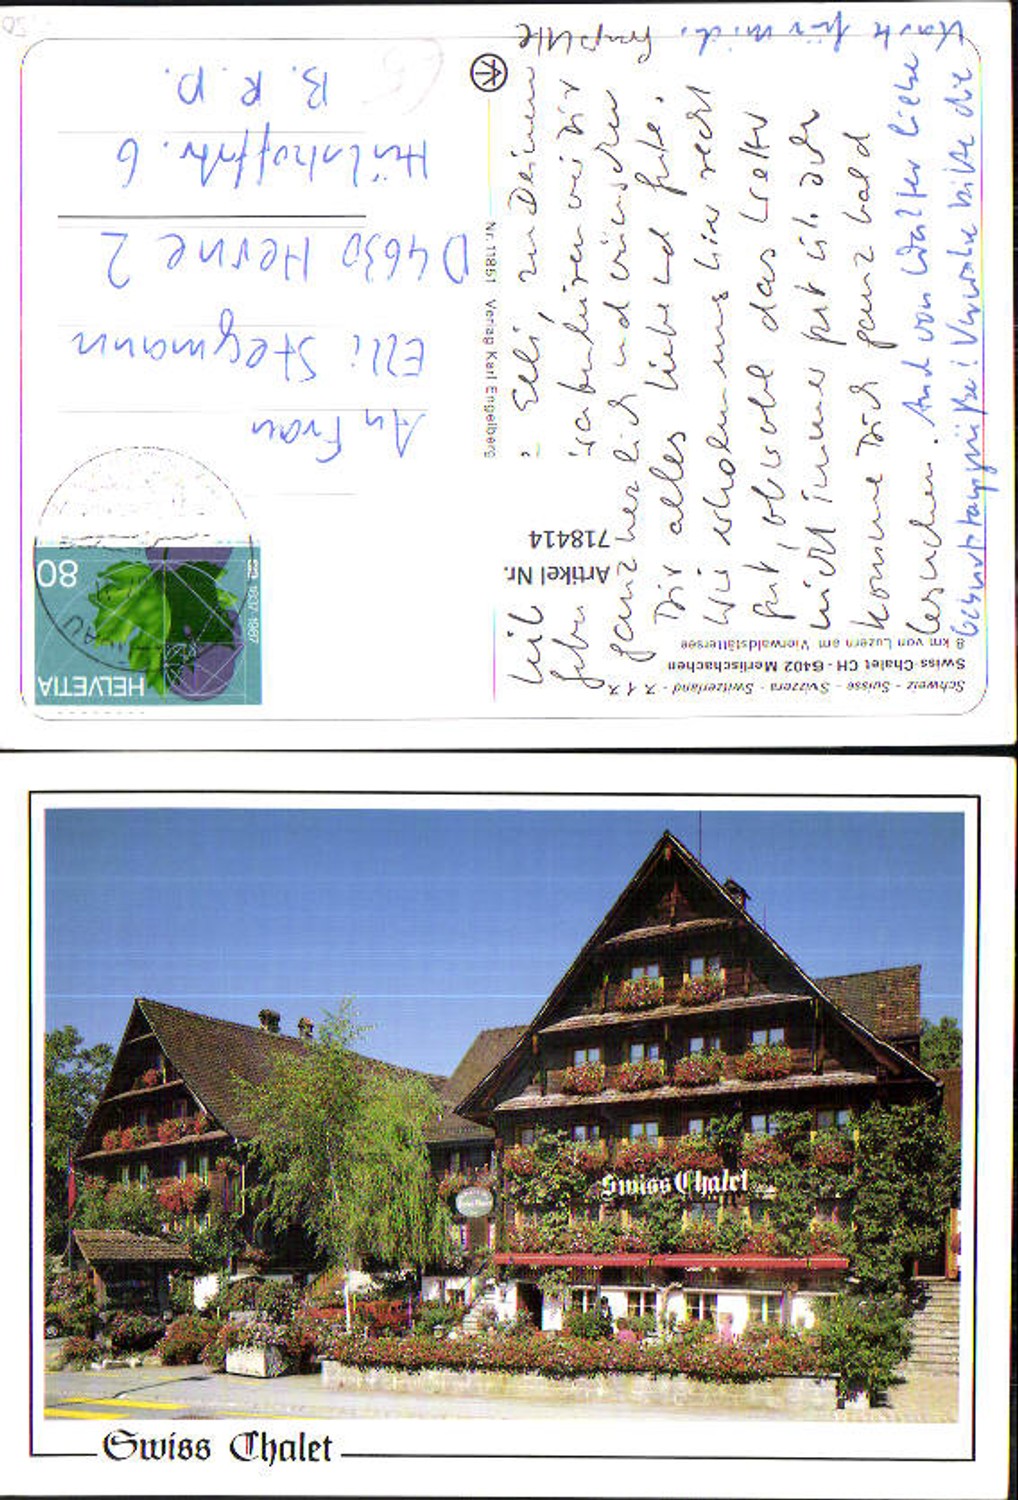 Schweiz - Suisse - Svizzera - Switzerland - 7.17
Swiss-Chalet CH-6402 Merlischachen
8 km von Luzern am Vierwaldstättersee
Artikel Nr.
718414
Nr. 11851 Verlag Karl Engelberg
HELVETIA
80
1937 1987
An Frau
Elli Stegmann
D 4630 Herne 2
Hülshoffstr. 6
B. R. D.
Elli, zu Deinem
Geburtstag gratulieren wir Dir
ganz herzlich und wünschen
Dir alles Liebe und Gute.
Wir erholen uns hier recht
gut, obwohl das Wetter
nicht immer gut ist. Ich
komme Dich ganz bald
besuchen. Auch von Walter liebe
Geburtstagsgrüße! Verwahre bitte die
Karte für mich. Gruß Ulle
Swiss Chalet
Swiss Chalet